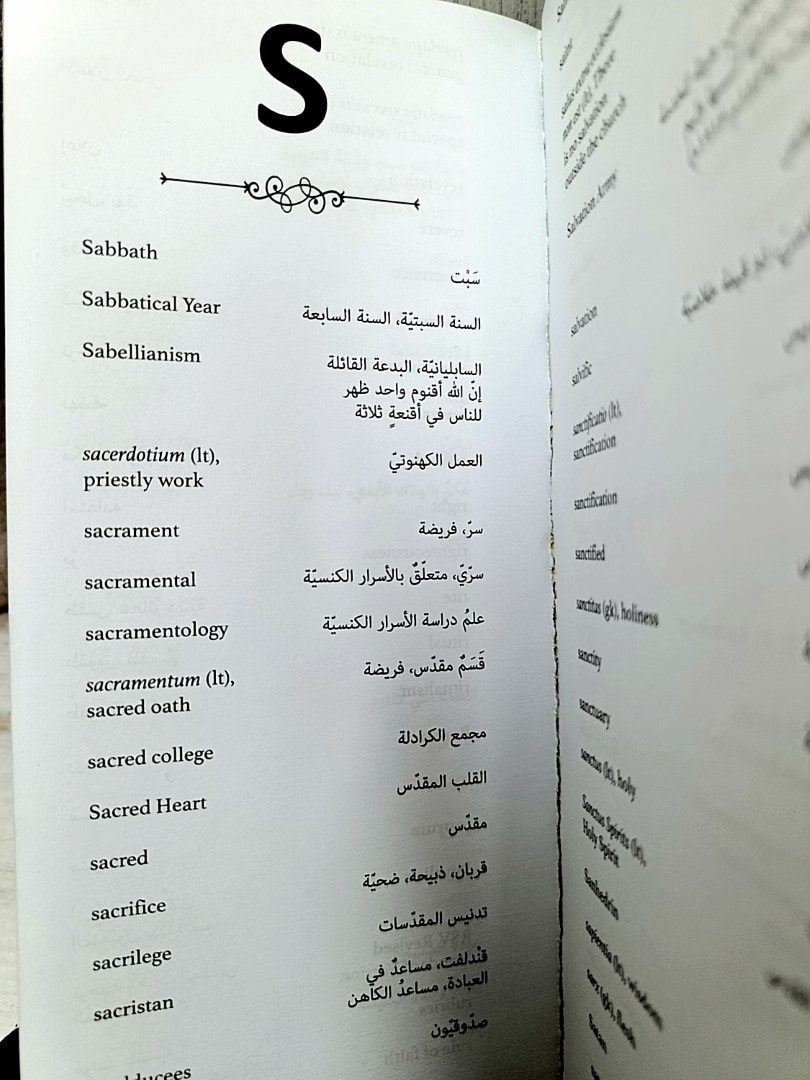 S
Sabbath
سَبْت
Sabbatical Year
السنة السبتيّة، السنة السابعة
Sabellianism
السابليانيّة، البدعة القائلة
إنّ الله أقنوم واحد ظهر
للناس في أقنعةٍ ثلاثة
sacerdotium (lt),
priestly work
العمل الكهنوتيّ
sacrament
سرّ، فريضة
sacramental
سرّيّ، متعلّقٌ بالأسرار الكنسيّة
sacramentology
علمُ دراسة الأسرار الكنسيّة
sacramentum (lt),
sacred oath
قَسَمٌ مقدّس، فريضة
sacred college
مجمع الكرادلة
Sacred Heart
القلب المقدّس
sacred
مقدّس
sacrifice
قربان، ذبيحة، ضحيّة
sacrilege
تدنيس المقدّسات
sacristan
قنْدلفت، مساعدٌ في
العبادة، مساعدُ الكاهن
صدّوقيّون
saint
salus extra ecclesiam
non est (lt), There
is no salvation
outside the church
Salvation Army
salvation
salvific
sanctificatio (lt),
sanctification
sanctification
sanctified
sanctitas (gk), holiness
sanctity
sanctuary
sanctus (lt), holy
Sanctus Spiritus (lt),
Holy Spirit
Sanhedrin
sapientia (lt), wisdom
sarx (gk), flesh
Satan